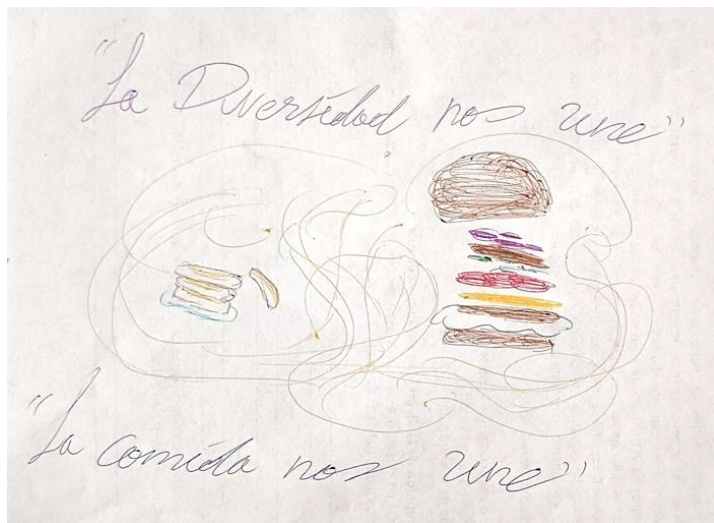 "La Diversidad nos une"
"La comida nos une"